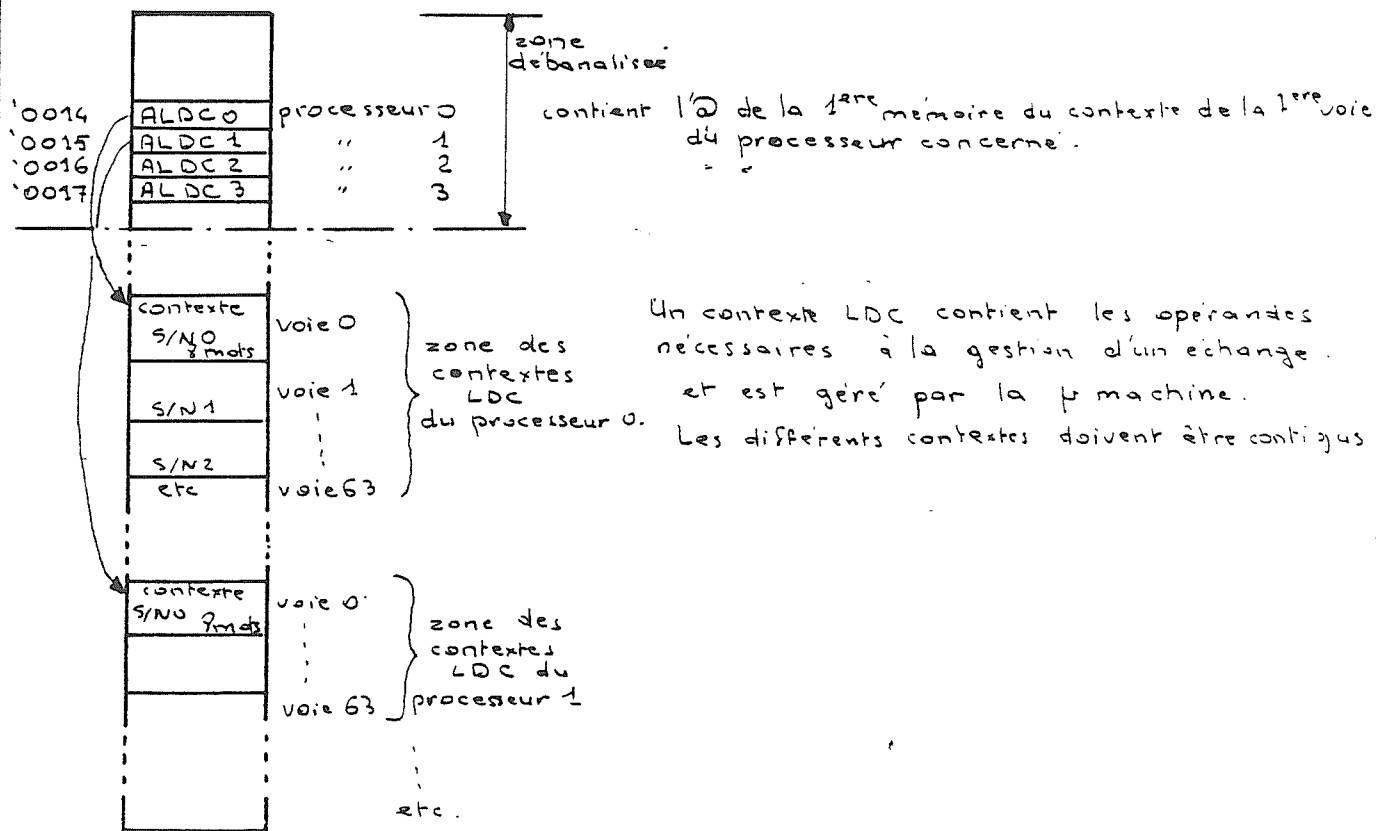 zone
débanalisée
'0014 ALDC0 processeur 0 contient l'@ de la 1ere mémoire du contexte de la 1ere voie
'0015 ALDC1 " 1 du processeur concerné.
'0016 ALDC2 " 2 " "
'0017 ALDC3 " 3
contexte
S/N0
mots
voie 0
S/N1
voie 1
S/N2
etc
voie 63
zone des
contextes
LDC
du processeur 0.
Un contexte LDC contient les opérandes
nécessaires à la gestion d'un échange.
et est géré par la µ machine.
Les différents contextes doivent être contigus
contexte
S/N0 mots
voie 0
voie 63
zone des
contextes
LDC du
processeur 1
etc.